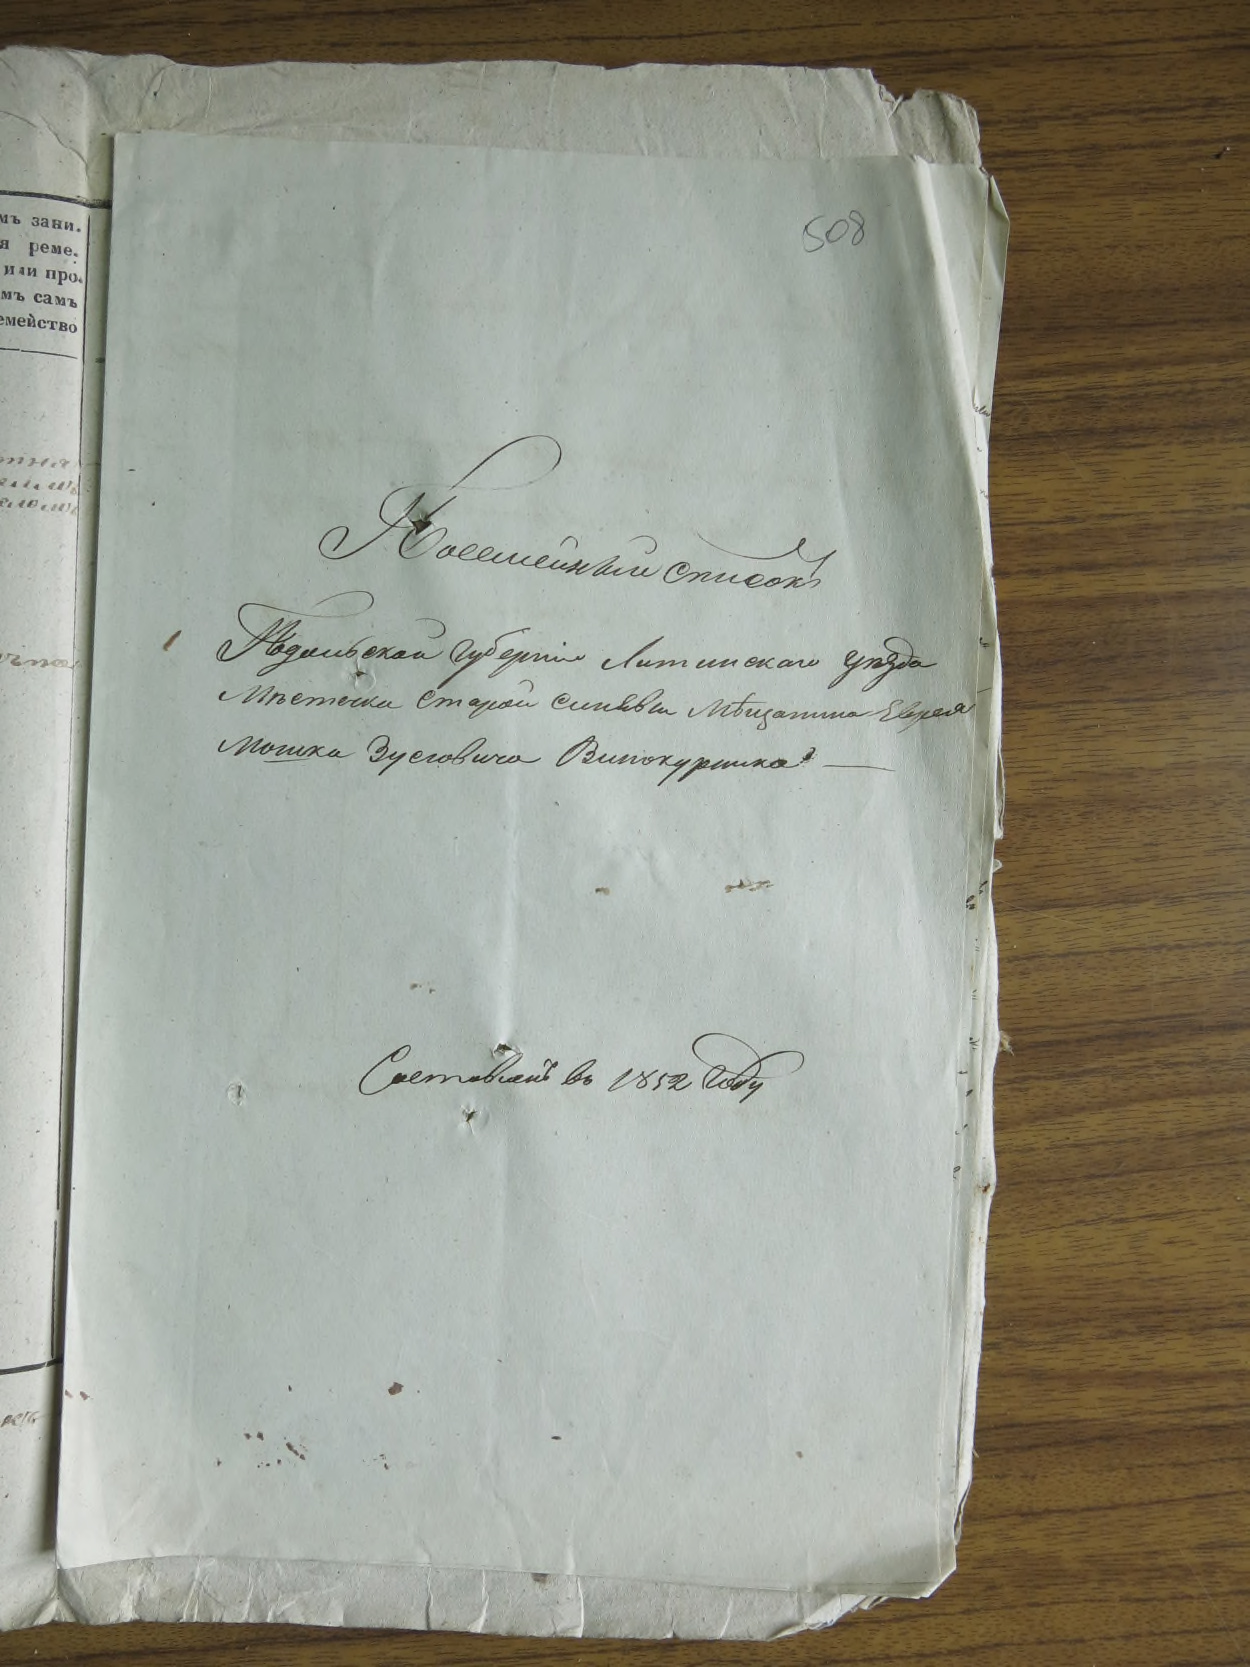 мъ зани.
я реме.
или про.
мъ самъ
емейство
508
Посемейный списокъ
Подольской губерніи Литинскаго уезда
Мѣстечка Старой Синявы Мѣщанина Еврея
Мошка Зусовича Винокурника
Составленъ въ 1852 году